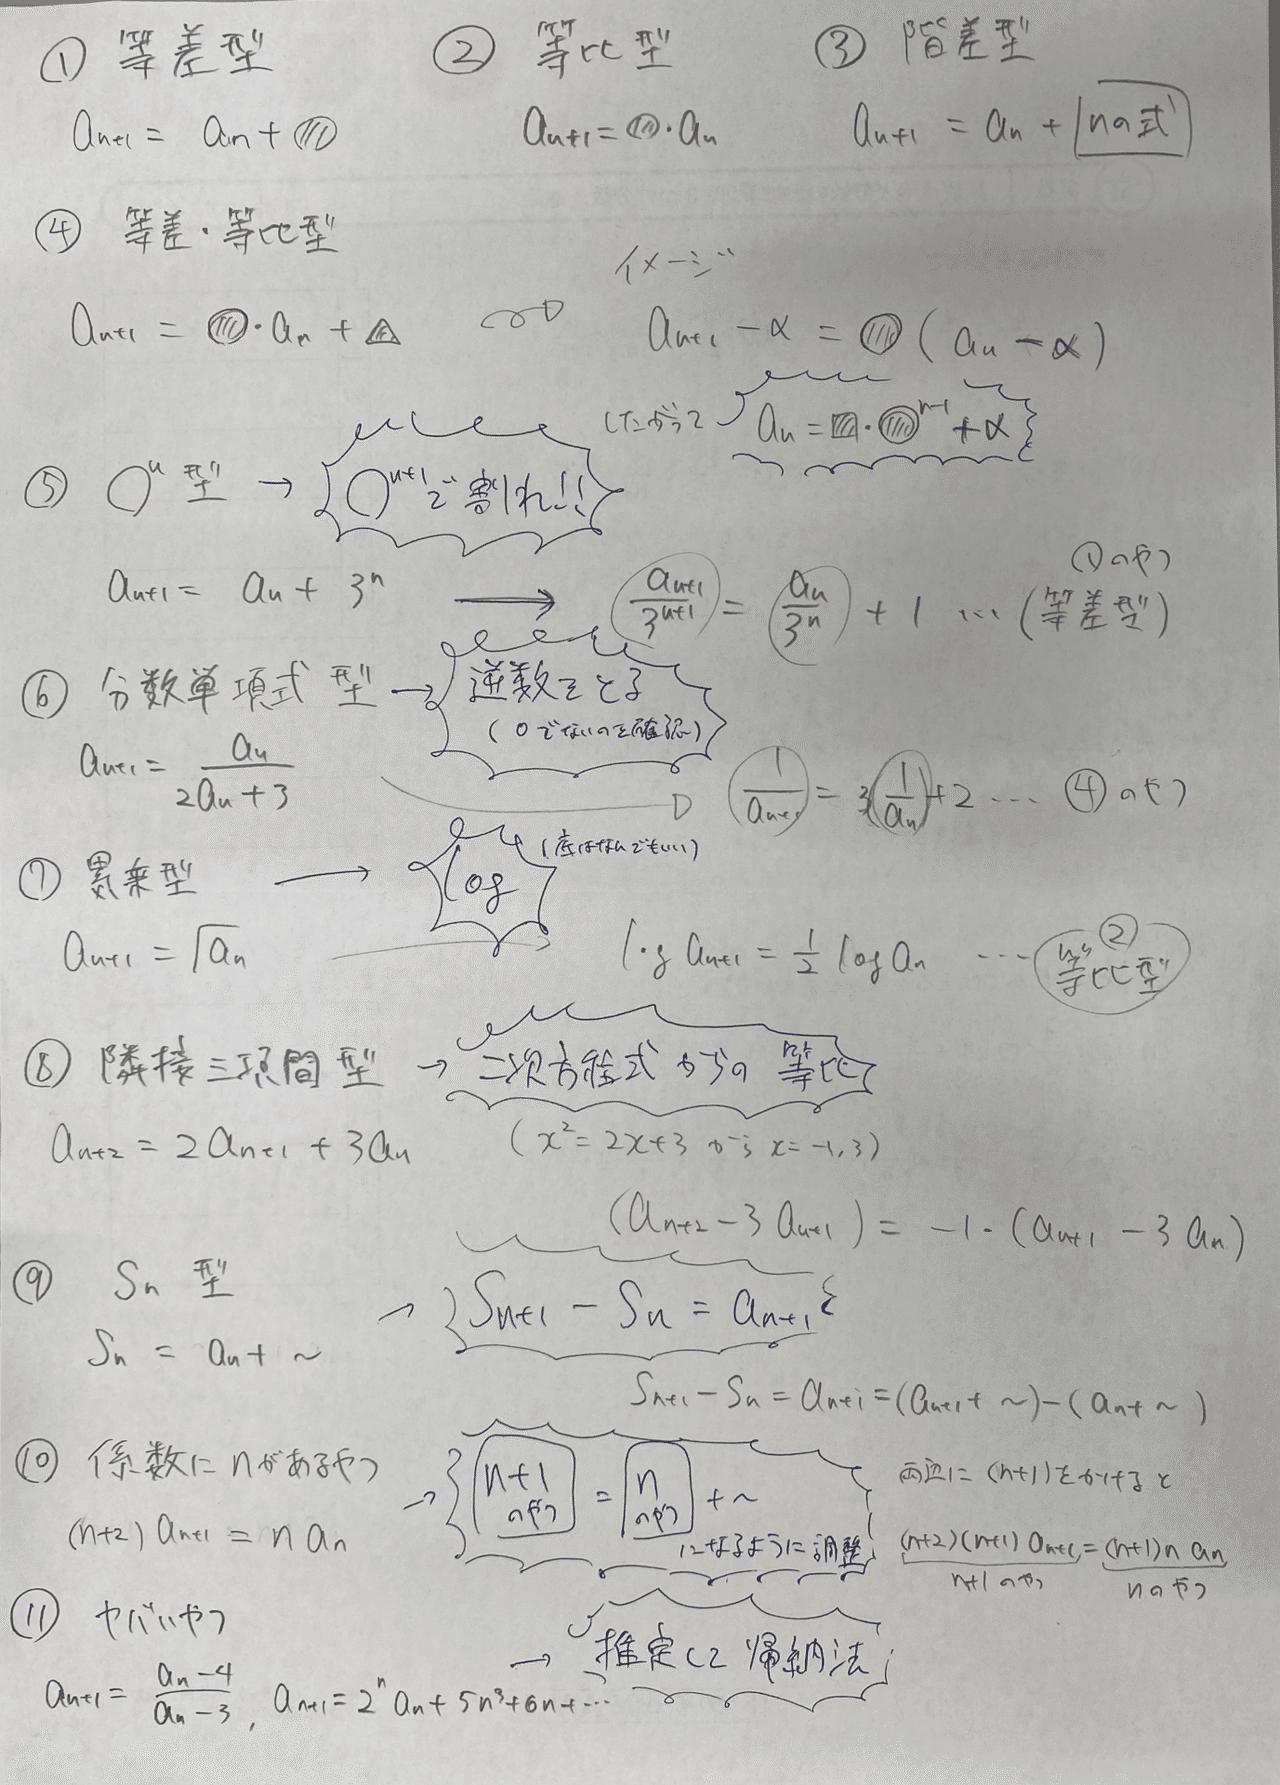 ① 等差型
aₙ₊₁ = aₙ + ○
② 等比型
aₙ₊₁ = ○・aₙ
③ 階差型
aₙ₊₁ = aₙ + nの式
④ 等差・等比型
イメージ
aₙ₊₁ = ○・aₙ + △
aₙ₊₁ - α = ○(aₙ - α)
したがって aₙ = □・○ⁿ⁻¹ + α
⑤ ○ⁿ型 → ○ⁿ⁺¹で割れ!!
aₙ₊₁ = aₙ + 3ⁿ → aₙ₊₁/3ⁿ⁺¹ = aₙ/3ⁿ + 1 … (等差型)
①のやつ
⑥ 分数単項式型 → 逆数をとる
(0でないのを確認)
aₙ₊₁ = aₙ/(2aₙ+3)
1/aₙ₊₁ = 3 1/aₙ + 2 … ④のやつ
⑦ 累乗型 → log (底はなんでもいい)
aₙ₊₁ = √aₙ
log aₙ₊₁ = 1/2 log aₙ … ② 等比型
⑧ 隣接三項間型 → 二次方程式からの等比
aₙ₊₂ = 2aₙ₊₁ + 3aₙ
(x² = 2x+3 から x = -1, 3)
(aₙ₊₂ - 3aₙ₊₁) = -1・(aₙ₊₁ - 3aₙ)
⑨ Sₙ型 → Sₙ₊₁ - Sₙ = aₙ₊₁
Sₙ = aₙ + ~
Sₙ₊₁ - Sₙ = aₙ₊₁ = (aₙ₊₁ + ~) - (aₙ + ~)
⑩ 係数にnがあるやつ
(n+2)aₙ₊₁ = n aₙ
→ n+1のやつ = nのやつ + ~
になるように調整
両辺に(n+1)をかけると
(n+2)(n+1)aₙ₊₁ = (n+1)n aₙ
n+1のやつ nのやつ
⑪ ヤバいやつ
→ 推定して帰納法
aₙ₊₁ = (aₙ-4)/(aₙ-3), aₙ₊₁ = 2ⁿaₙ + 5n³ + 6n + …